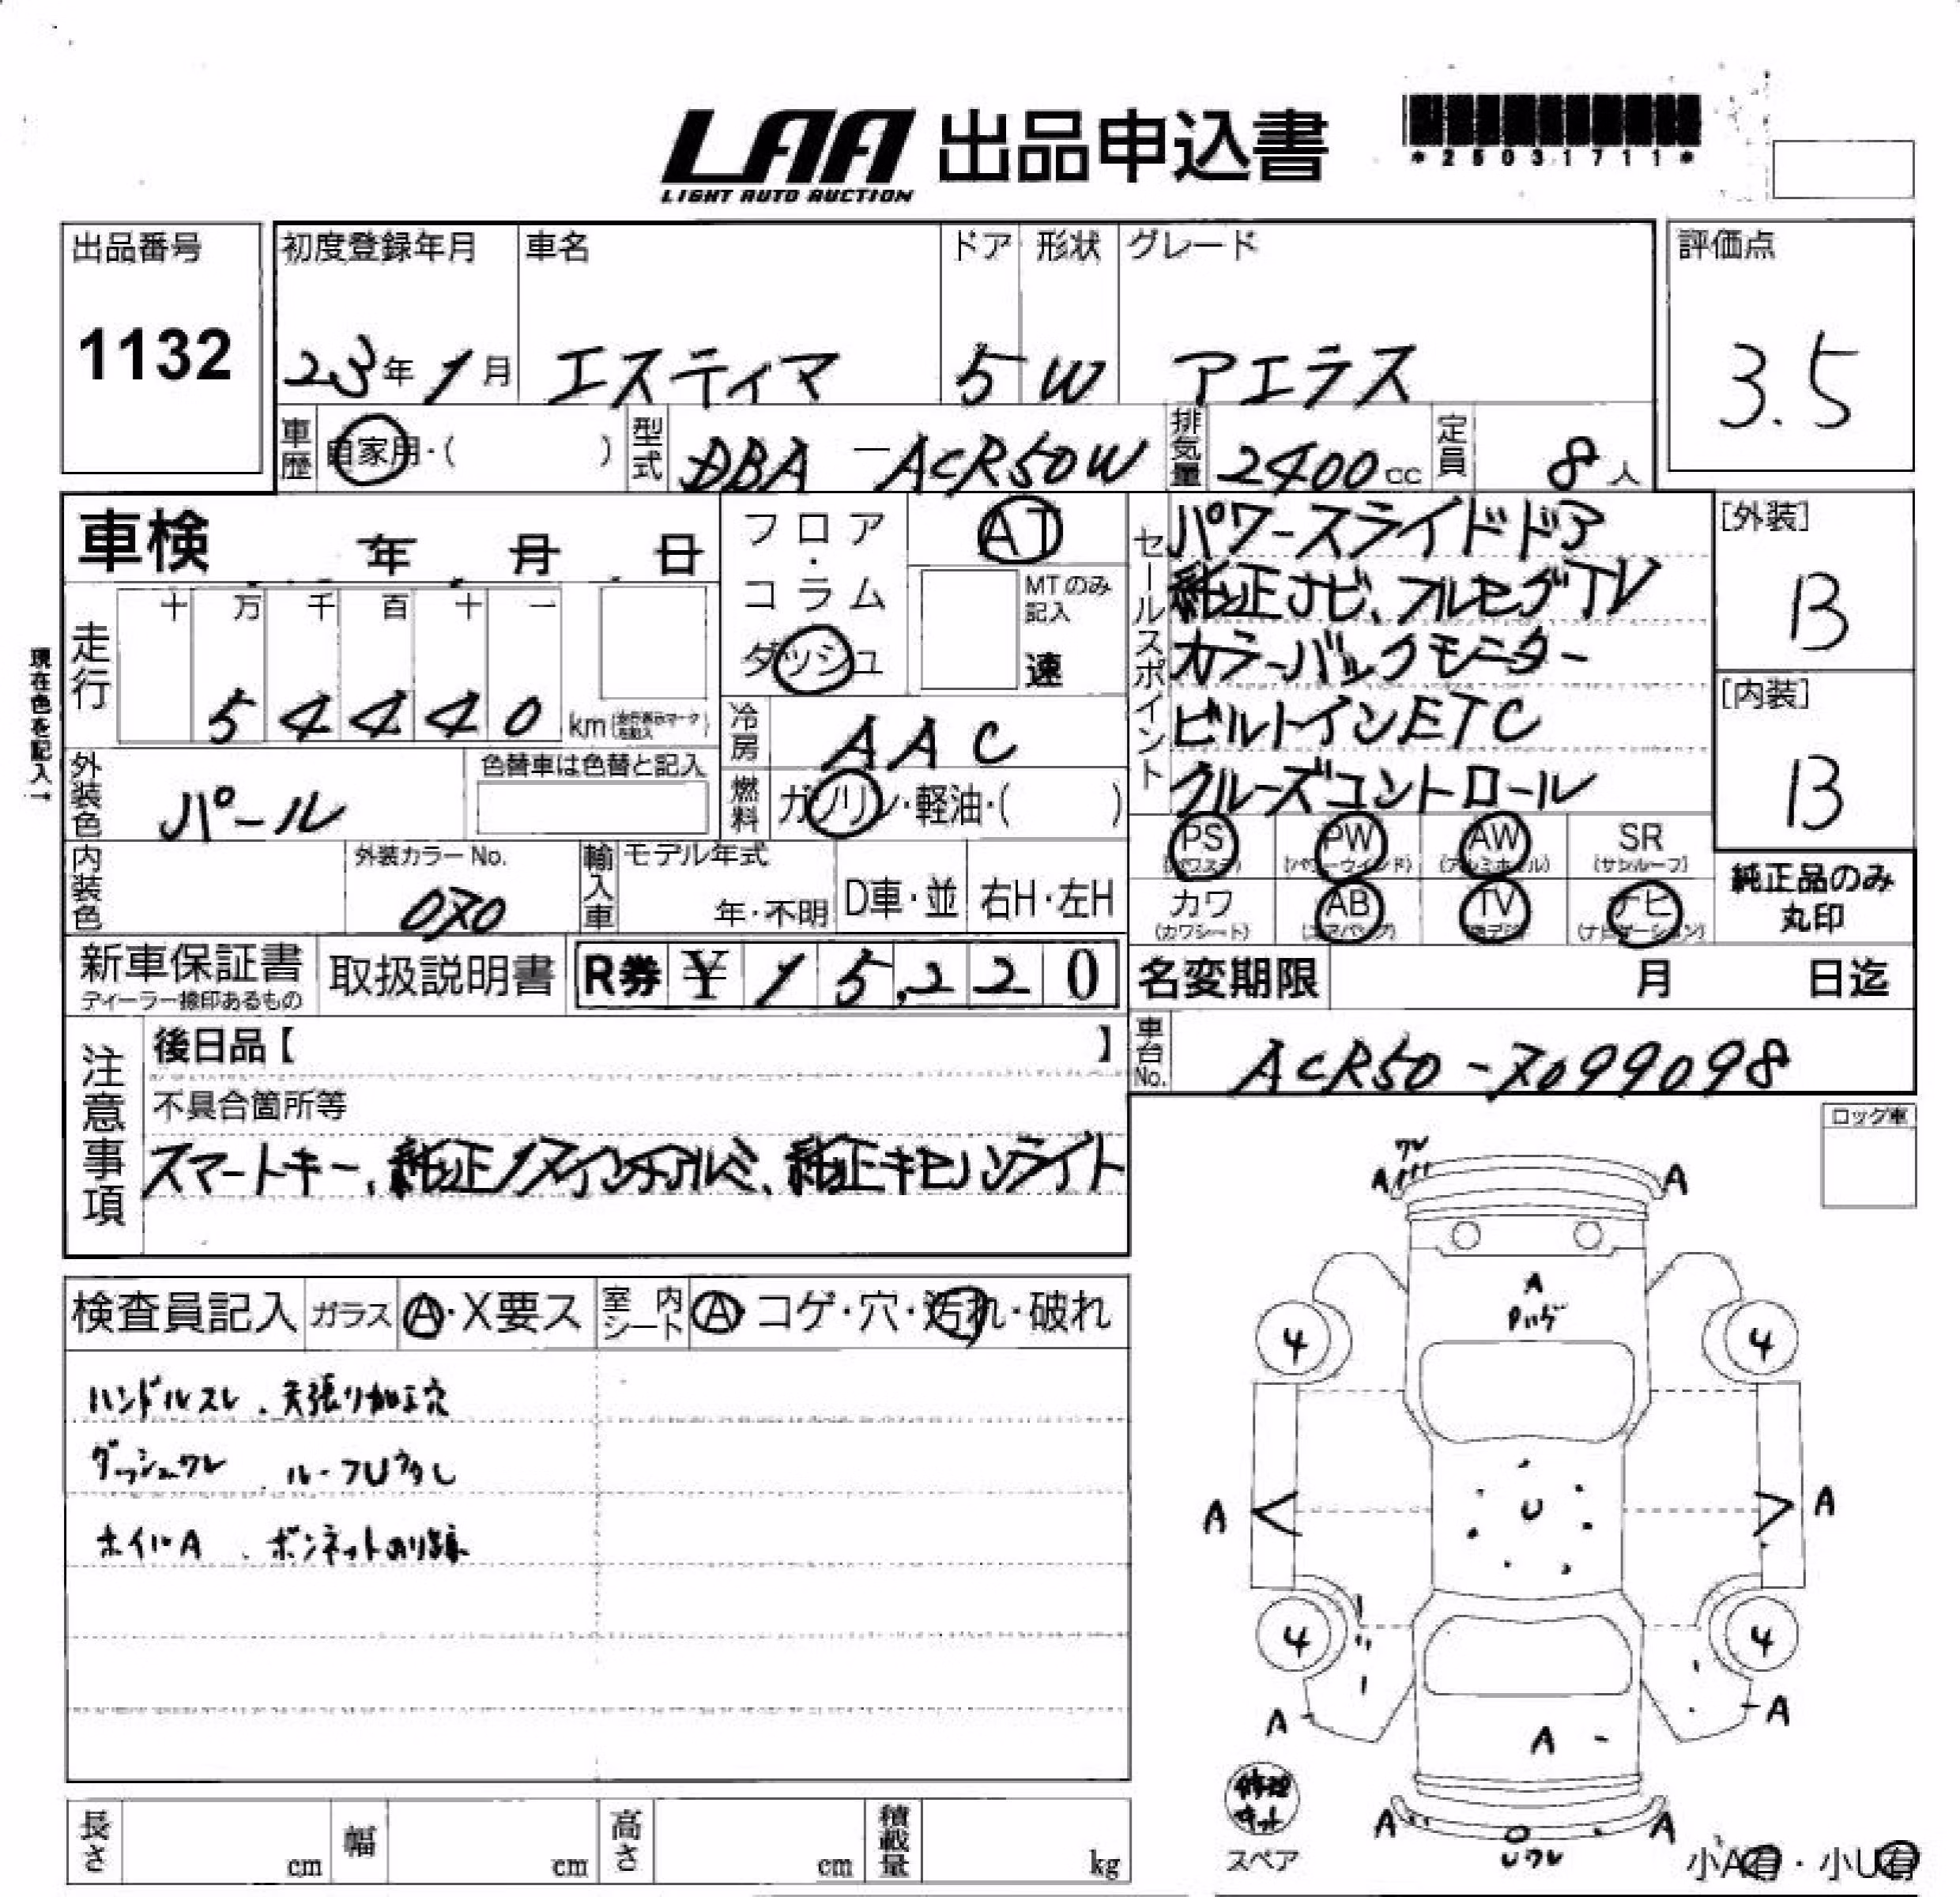 LAA 出品申込書
LIGHT AUTO AUCTION
*25031711*
出品番号 初度登録年月 車名 ドア 形状 グレード 評価点
1132 23年1月 エスティマ 5 W アエラス 3.5
車歴 自家用・( ) 型式 DBA-ACR50W 排気量 2400cc 定員 8人
車検 年 月 日
フロア・コラム
ダッシュ
AT
MTのみ記入
速
セールスポイント
パワースライドドア
純正ナビ、フルセグTV
カラーバックモニター
ビルトインETC
クルーズコントロール
[外装]
B
[内装]
B
現在色を記入→
走行 十 万 千 百 十 一
54440 km
冷房 AAC
外装色 パール 色替車は色替と記入
燃料 ガソリン・軽油・( )
PS (パワステ) PW (パワーウインド) AW (アルミホイル) SR (サンルーフ)
カワ (カワシート) AB (エアバッグ) TV ナビ (ナビゲーション)
純正品のみ
丸印
内装色 外装カラーNo. 070 輸入車 モデル年式 年・不明 D車・並 右H・左H
新車保証書 取扱説明書 R券 ¥15,220 名変期限 月 日迄
ディーラー捺印あるもの
車台No. ACR50-7099098
注意事項
後日品【 】
不具合箇所等
スマートキー、純正17インチアルミ、純正キセノンライト
ロック車
検査員記入 ガラス A・X要ス 室内シート A・コゲ・穴・汚れ・破れ
ハンドルスレ、天張り加工穴
ダッシュワレ、ルーフUﾀﾀﾞｼ
ホイルA、ボンネット
ワレ
A A
A
4 4
U
A A
4 4
A A
A
A A
Uワレ
修理キット
スペア
小A有・小U有
長さ cm 幅 cm 高さ cm 積載量 kg